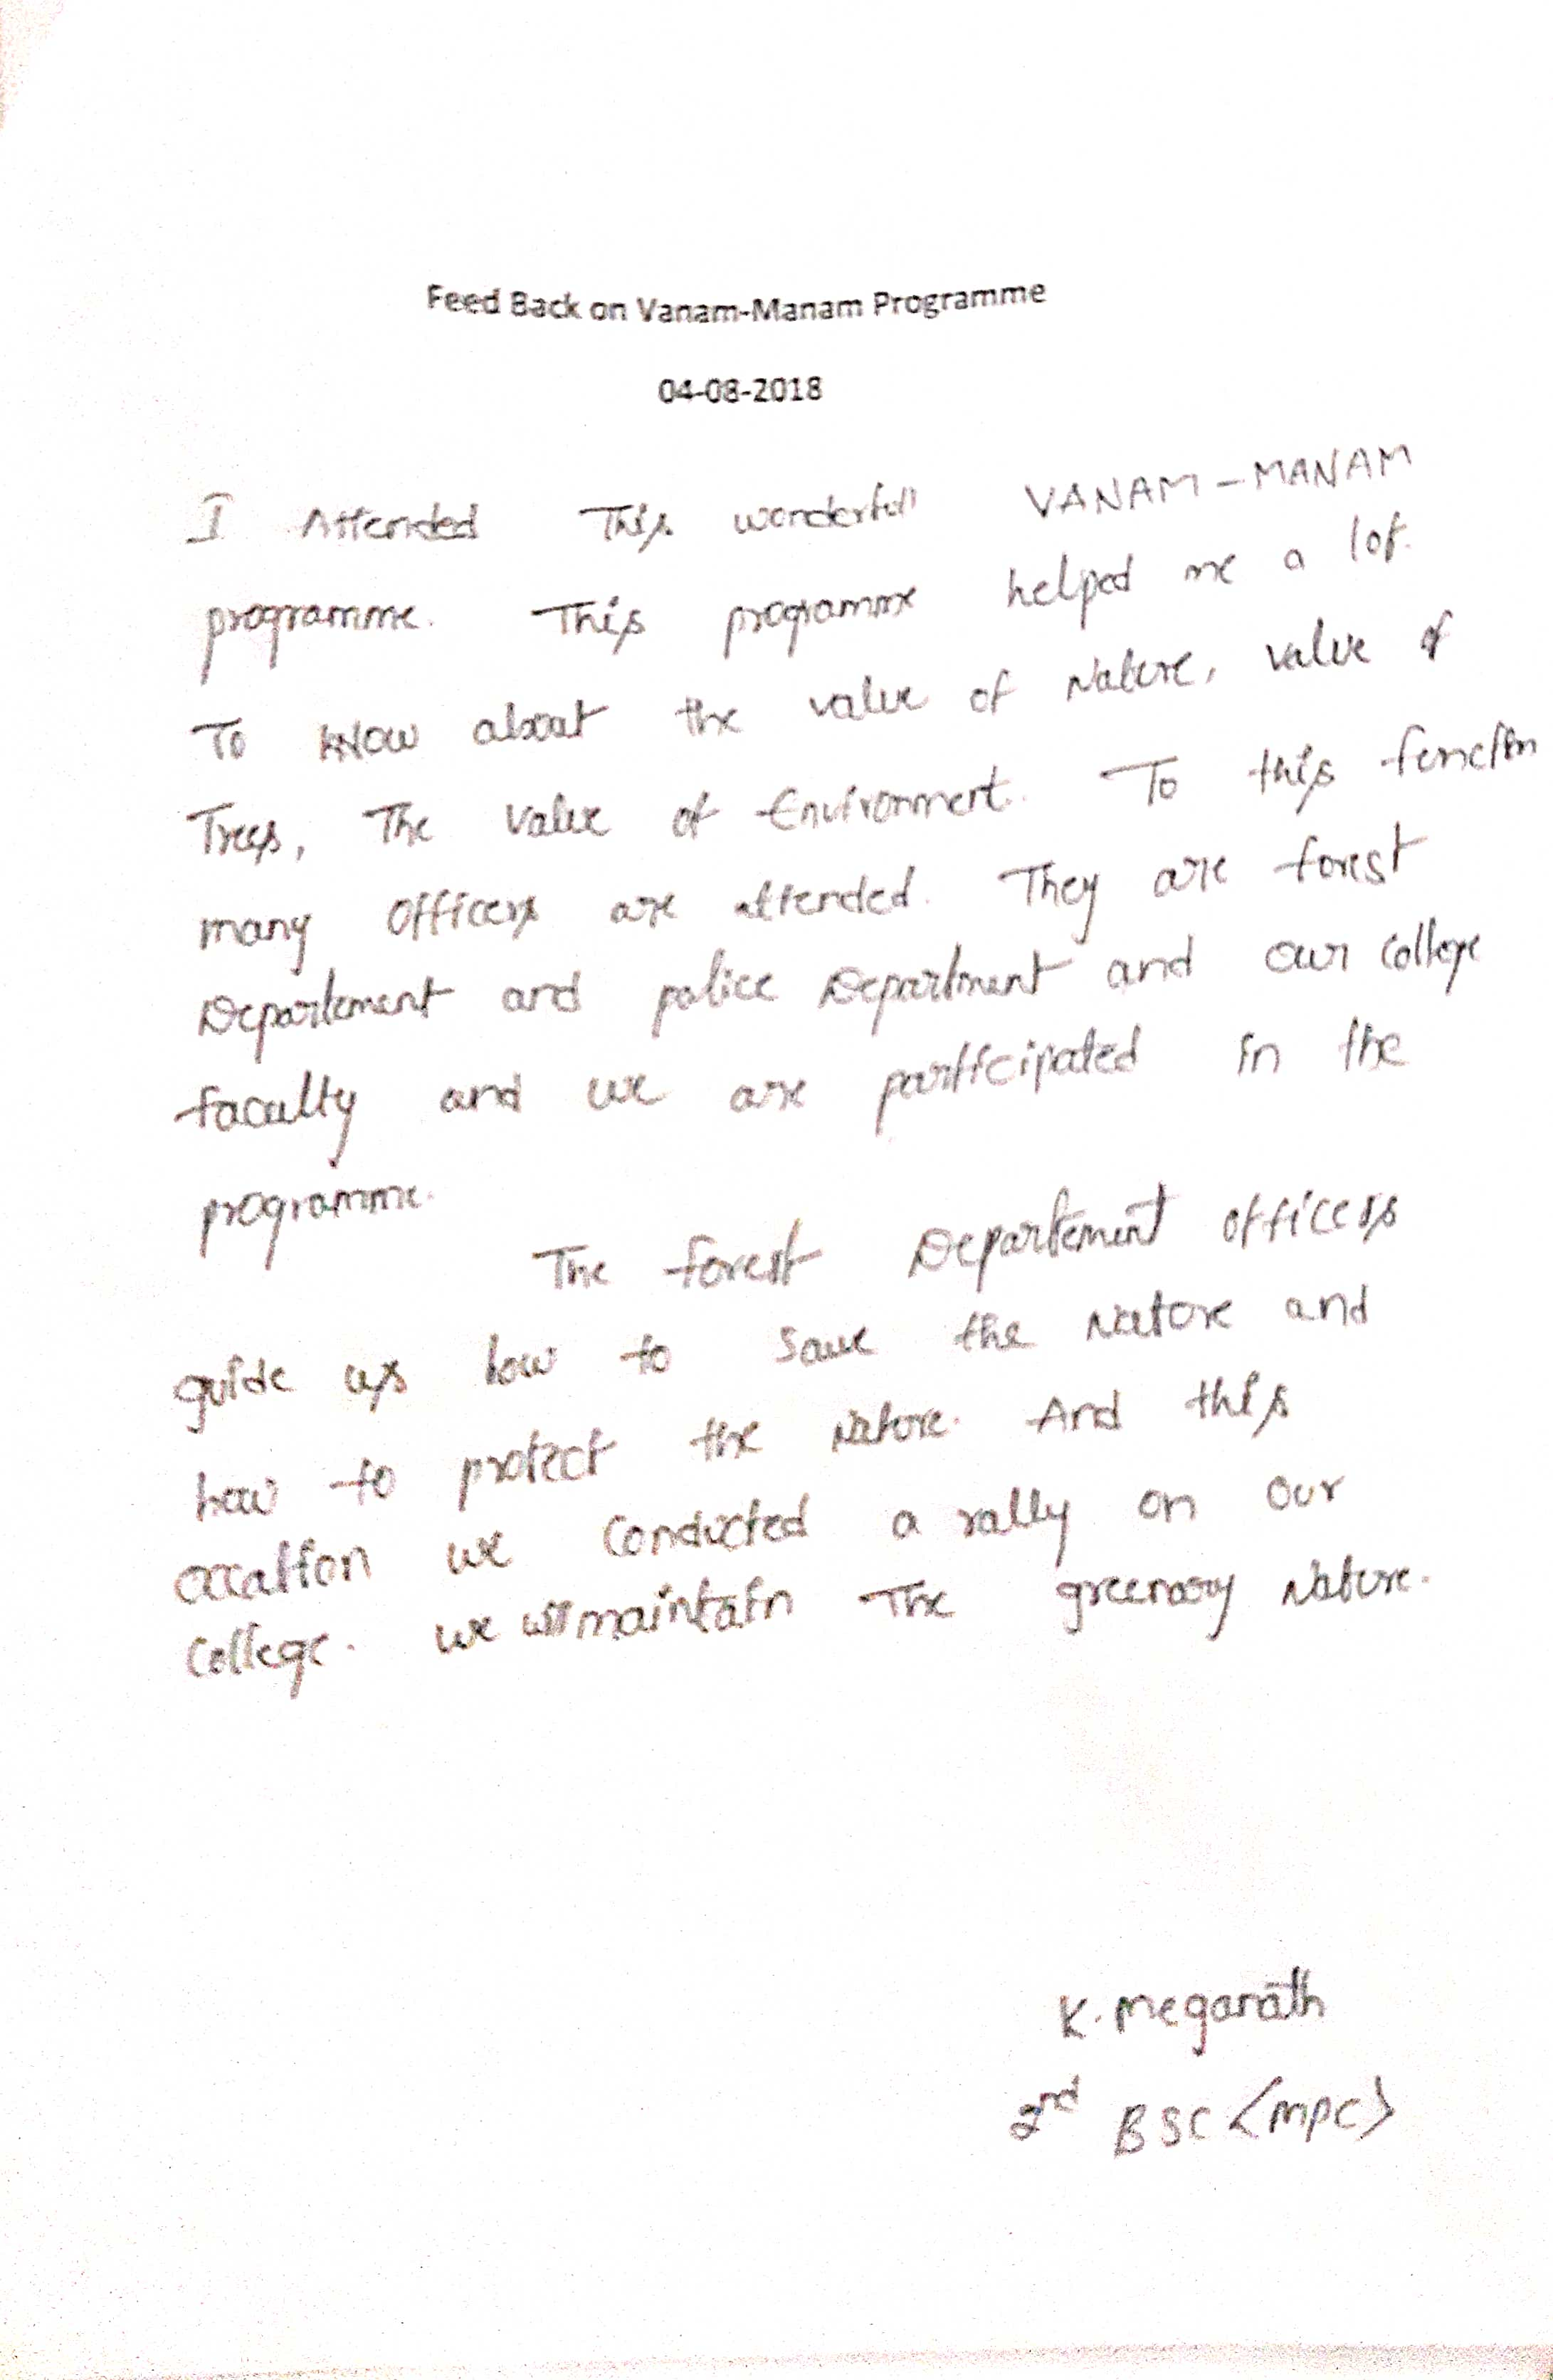 Feed Back on Vanam-Manam Programme
04-08-2018
I Attended This wonderfull VANAM-MANAM
programme. This programme helped me a lot.
To know about the value of Nature, value of
Trees, The value of Environment. To this function
many officers are attended. They are forest
Departement and police Department and our college
faculty and we are participated in the
programme.
The forest Departement officers
guide us how to save the Nature and
how to protect the Nature. And this
we conducted a rally on our
College. we will maintain The greenary Nature.
K. meganath
2nd BSC <mpc>